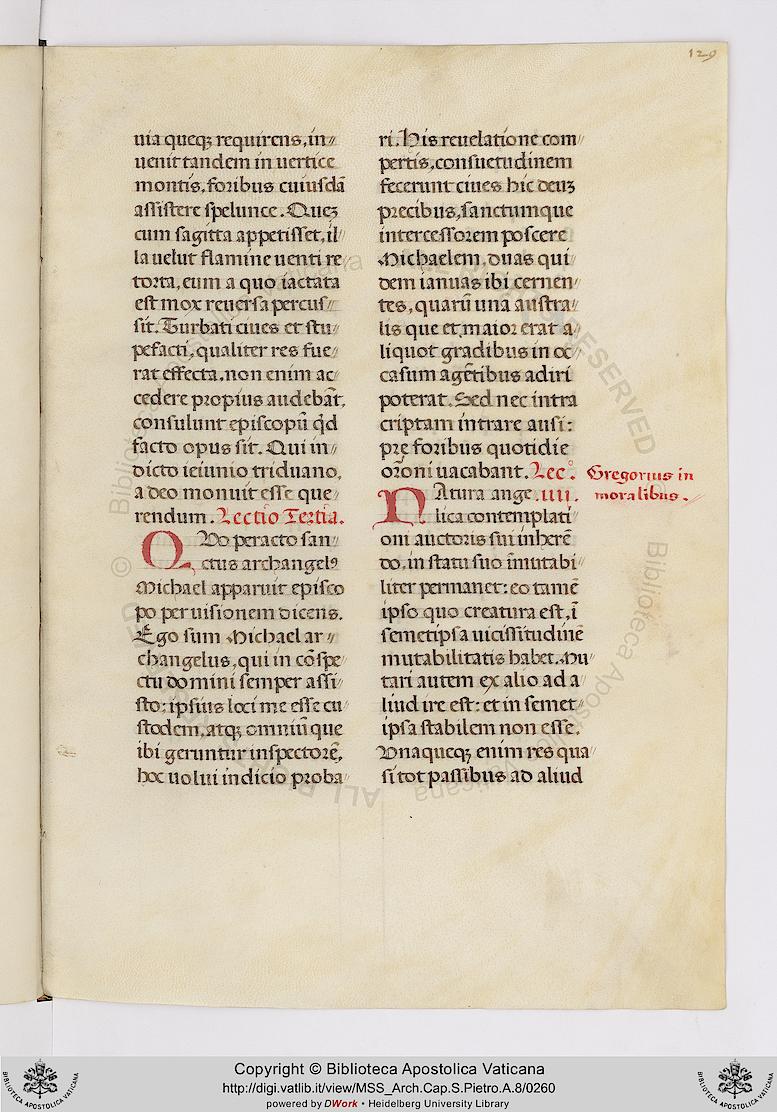 129
uia queqꝫ requirens, in
uenit tandem in uertice
montis, foribus cuiusdā
assistere spelunce. Queꝫ
cum sagitta appetisset, il
la uelut flamine uenti re
torta, eum a quo iactata
est mox reuersa percus
sit. Turbati ciues et stu
pefacti, qualiter res fue
rat effecta, non enim ac
cedere propius audebāt,
consulunt episcopū qđ
facto opus sit. Qui in
dicto ieiunio triduano,
a deo monuit esse que
rendum. Lectio Tertia.
QVo peracto san
ctus archangelꝰ
Michael apparuit episco
po per uisionem dicens.
Ego sum Michael ar
changelus, qui in cōspe
ctu domini semper assi
sto: ipsius loci me esse cu
stodem, atqꝫ omniū que
ibi geruntur inspectorē,
hoc uolui indicio proba
ri. His reuelatione com
pertis, consuetudinem
fecerunt ciues hic deuꝫ
precibus, sanctumque
intercessorem poscere
Michaelem, duas qui
dem ianuas ibi cernen
tes, quarū una austra
lis que et maior erat a
liquot gradibus in oc
casum agētibus adiri
poterat. Sed nec intra
criptam intrare ausi:
pre foribus quotidie
orōni uacabant. Lec°.
NAtura ange .iiii.
lica contemplati
oni auctoris sui inherē
do, in statu suo īmutabi
liter permanet: eo tamē
ipso quo creatura est, ī
semetipsa uicissitudinē
mutabilitatis habet. Mu
tari autem ex alio ad a
liud ire est: et in semet
ipsa stabilem non esse.
Vnaqueqꝫ enim res qua
si tot passibus ad aliud
Gregorius in
moralibus.
Copyright © Biblioteca Apostolica Vaticana
http://digi.vatlib.it/view/MSS_Arch.Cap.S.Pietro.A.8/0260
powered by DWork • Heidelberg University Library
BIBLIOTECA APOSTOLICA VATICANA
BIBLIOTECA APOSTOLICA VATICANA